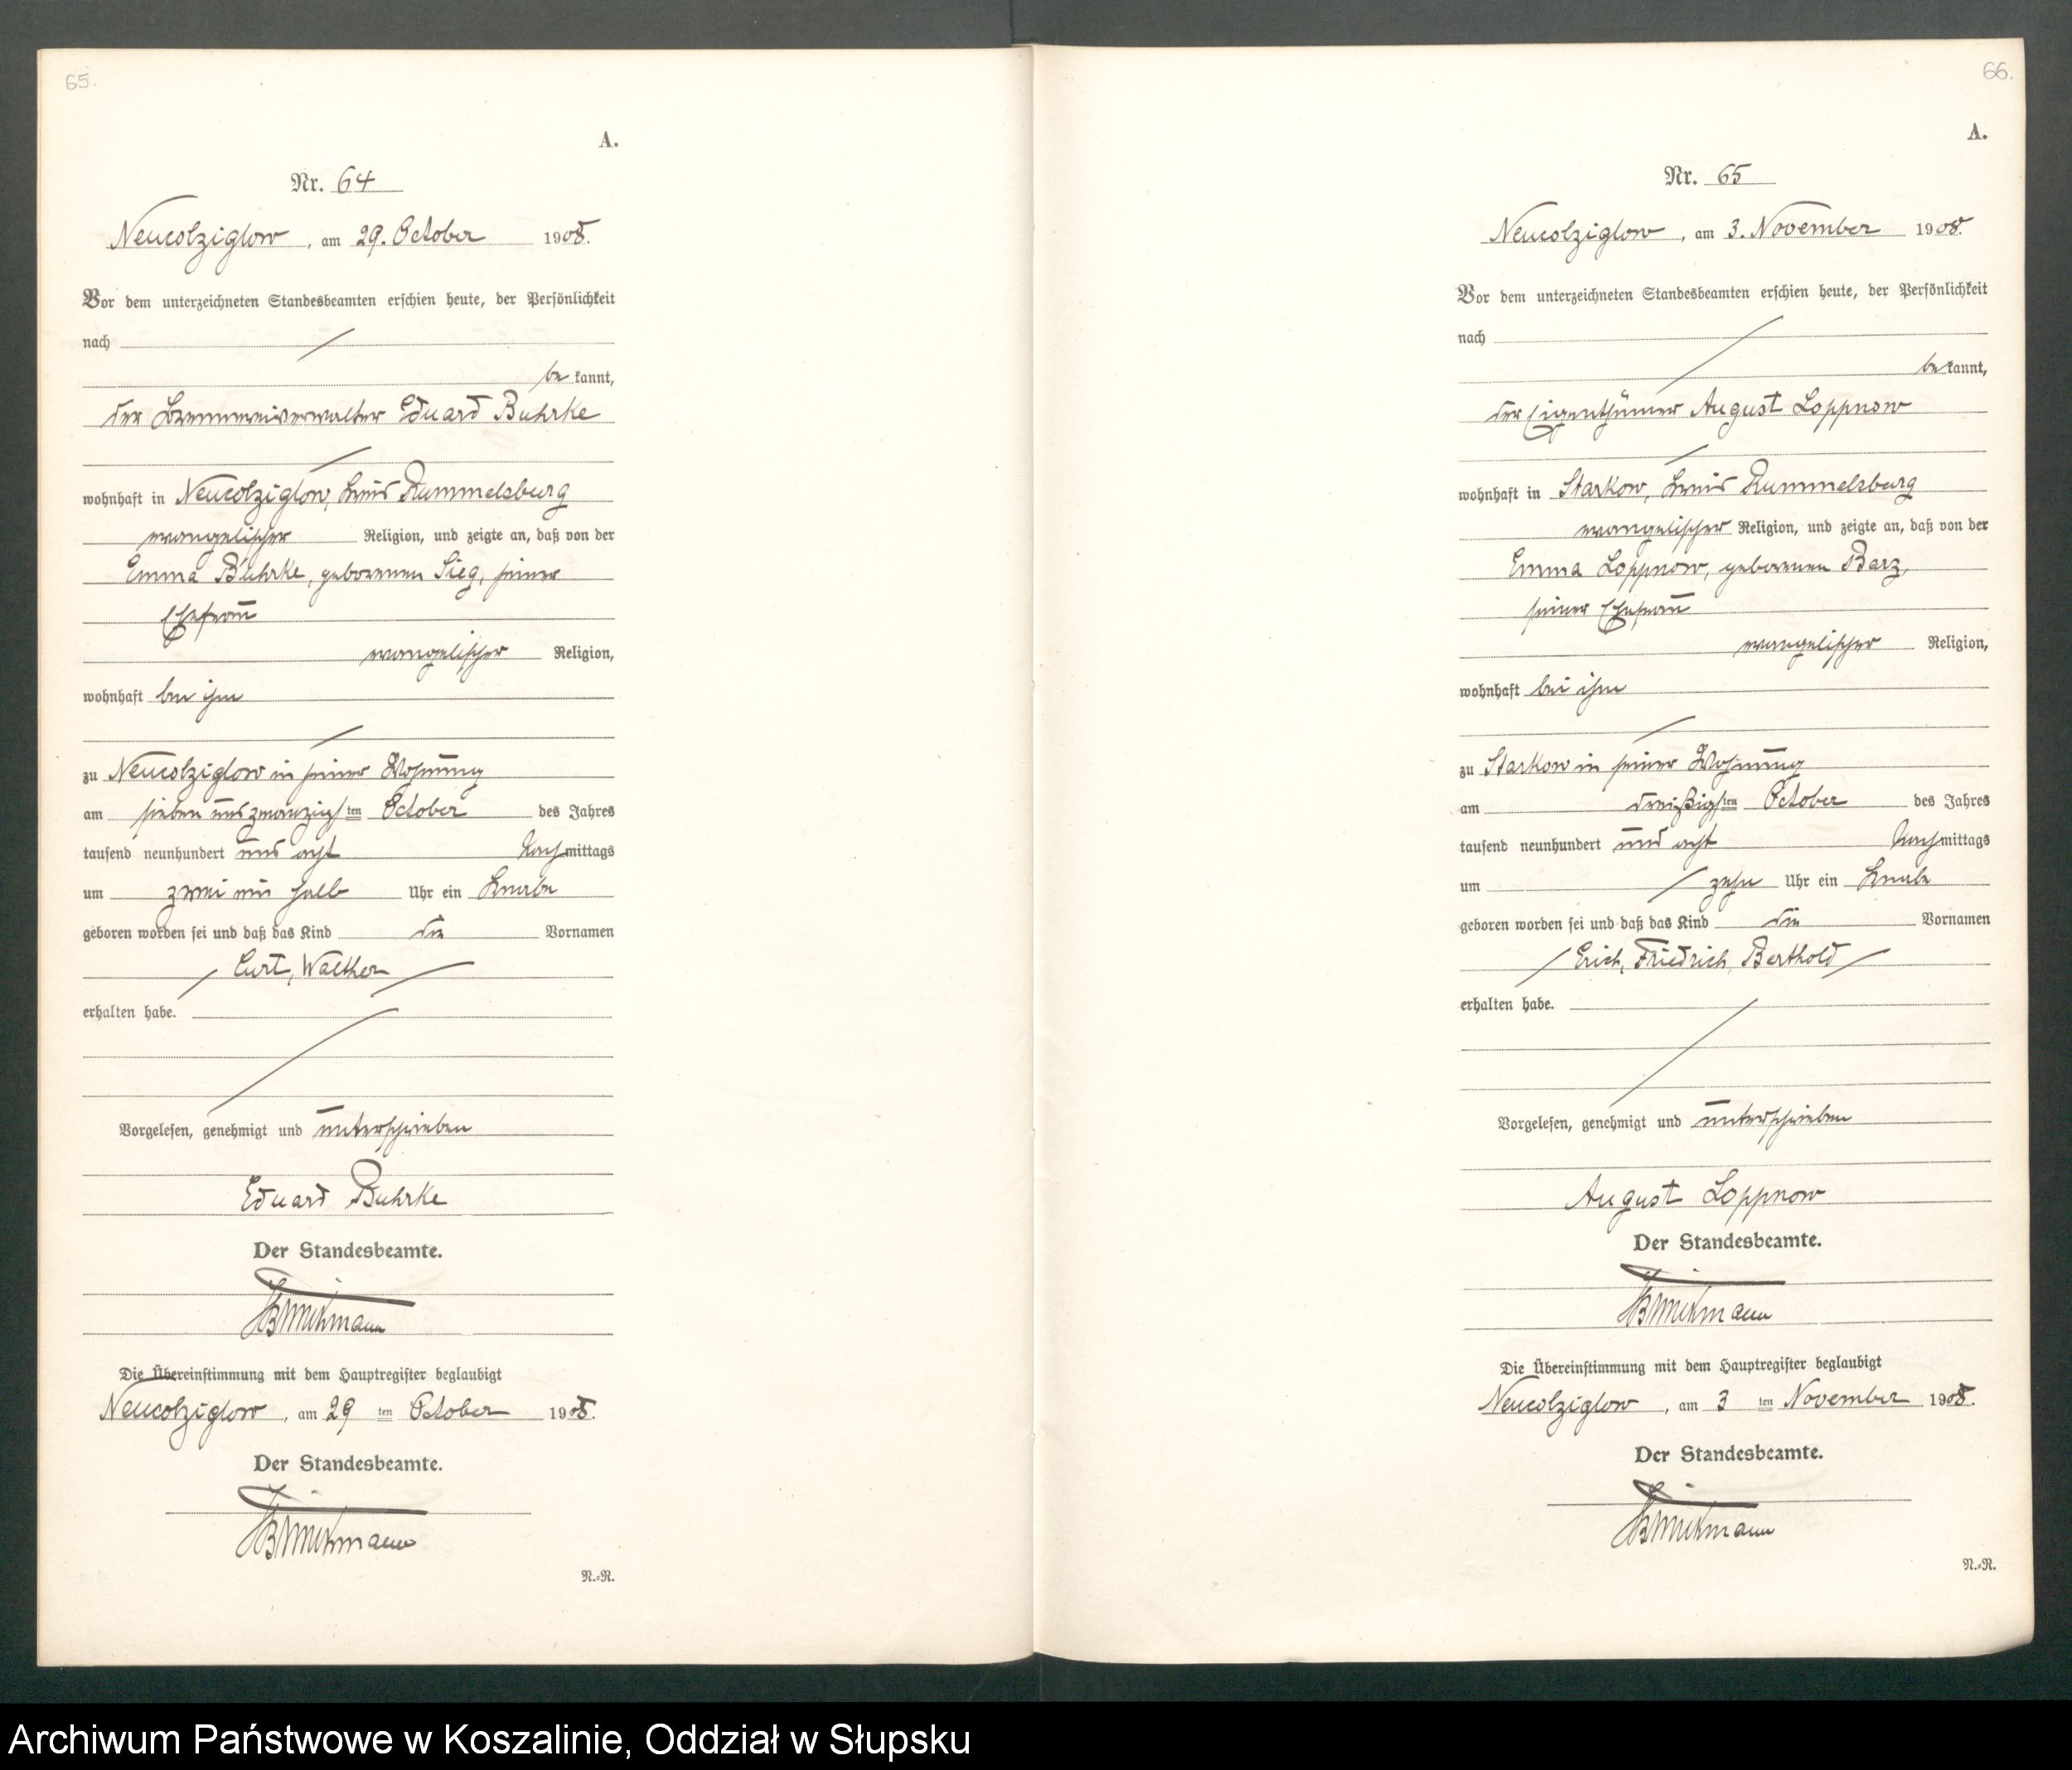 65.
A.
Nr. 64
Neucolziglow, am 29. October 1908.
Vor dem unterzeichneten Standesbeamten erschien heute, der Persönlichkeit
nach
be kannt,
der Brennereiverwalter Eduard Buhrke
wohnhaft in Neucolziglow, Kreis Rummelsburg
evangelischer Religion, und zeigte an, daß von der
Emma Buhrke, geborenen Sieg, seiner
Ehefrau
evangelischer Religion,
wohnhaft bei ihm
zu Neucolziglow in seiner Wohnung
am sieben und zwanzigsten October des Jahres
tausend neunhundert und acht Nachmittags
um zwei ein halb Uhr ein Knabe
geboren worden sei und daß das Kind die Vornamen
Curt, Walther
erhalten habe.
Vorgelesen, genehmigt und unterschrieben
Eduard Buhrke
Der Standesbeamte.
Die Übereinstimmung mit dem Hauptregister beglaubigt
Neucolziglow, am 29 ten October 1908.
Der Standesbeamte.
N.=R.
66.
A.
Nr. 65
Neucolziglow, am 3. November 1908.
Vor dem unterzeichneten Standesbeamten erschien heute, der Persönlichkeit
nach
be kannt,
der Eigenthümer August Loppnow
wohnhaft in Starkow, Kreis Rummelsburg
evangelischer Religion, und zeigte an, daß von der
Emma Loppnow, geborenen Barz,
seiner Ehefrau
evangelischer Religion,
wohnhaft bei ihm
zu Starkow in seiner Wohnung
am dreißigsten October des Jahres
tausend neunhundert und acht Nachmittags
um zehn Uhr ein Knabe
geboren worden sei und daß das Kind die Vornamen
Erich, Friedrich, Berthold
erhalten habe.
Vorgelesen, genehmigt und unterschrieben
August Loppnow
Der Standesbeamte.
Die Übereinstimmung mit dem Hauptregister beglaubigt
Neucolziglow, am 3 ten November 1908.
Der Standesbeamte.
N.=R.
Archiwum Państwowe w Koszalinie, Oddział w Słupsku